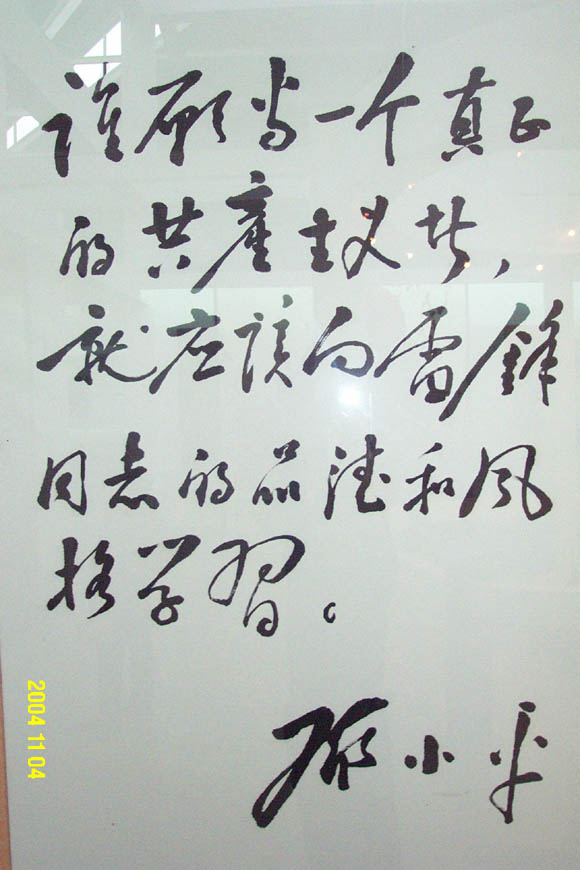 谁願当一个真正
的共產主义者,
就应该向雷鋒
同志的品德和风
格学習。
邓小平
2004 11 04